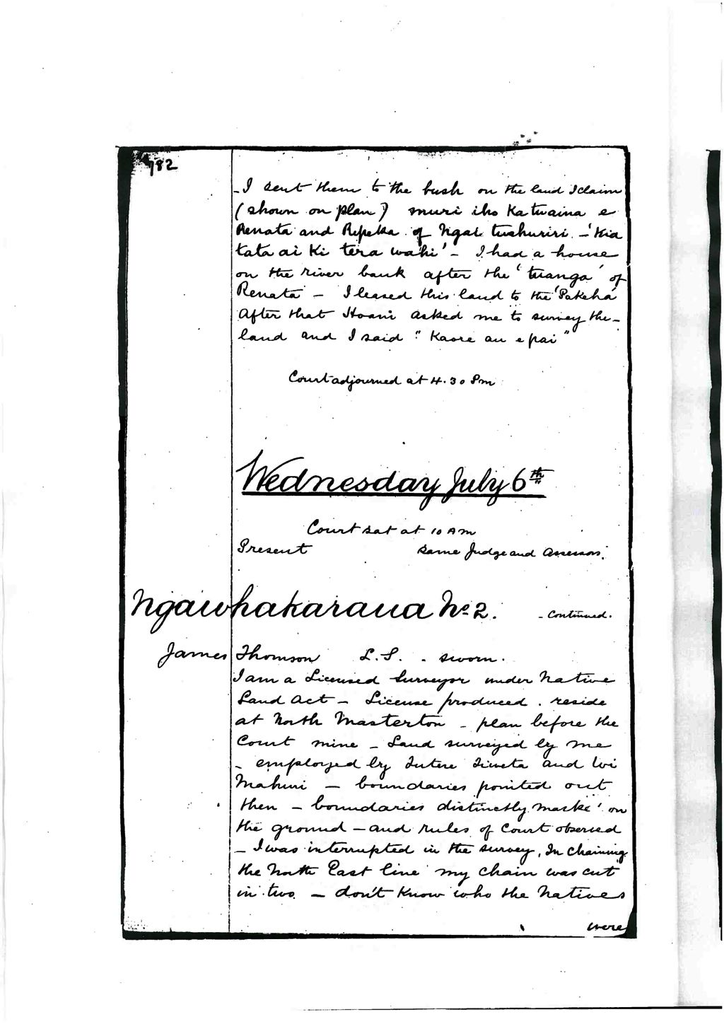 782
_ I sent them to the bush on the land I claim
(shown on plan) muri iho Ka tuaina e
Renata and Ripeka of Ngai tuahuriri _ 'Kia
tata ai Ki tera wahi' _ I had a house
on the river bank after the ' tuanga ' of
Renata _ I leased this land to the 'Pakeha'
After that Hoani asked me to survey the _
land and I said " Kaore au e pai "
Court adjourned at 4.30 Pm
Wednesday July 6th
Court sat at 10 AM
Present same Judge and Assessors.
Ngawhakaraua No 2. _ Continued.
James Thomson L.S. - sworn.
I am a Licensed Surveyor under Native
Land Act _ License produced. reside
at North Masterton _ plan before the
Court mine _ Land surveyed by me
_ employed by and Wi
Mahuri _ boundaries pointed out
then _ boundaries distinctly marke' on
the ground _ and rules of Court observed
_ I was interrupted in the survey, In chaining
the North East line my chain was cut
in two _ don't know who the Natives
were